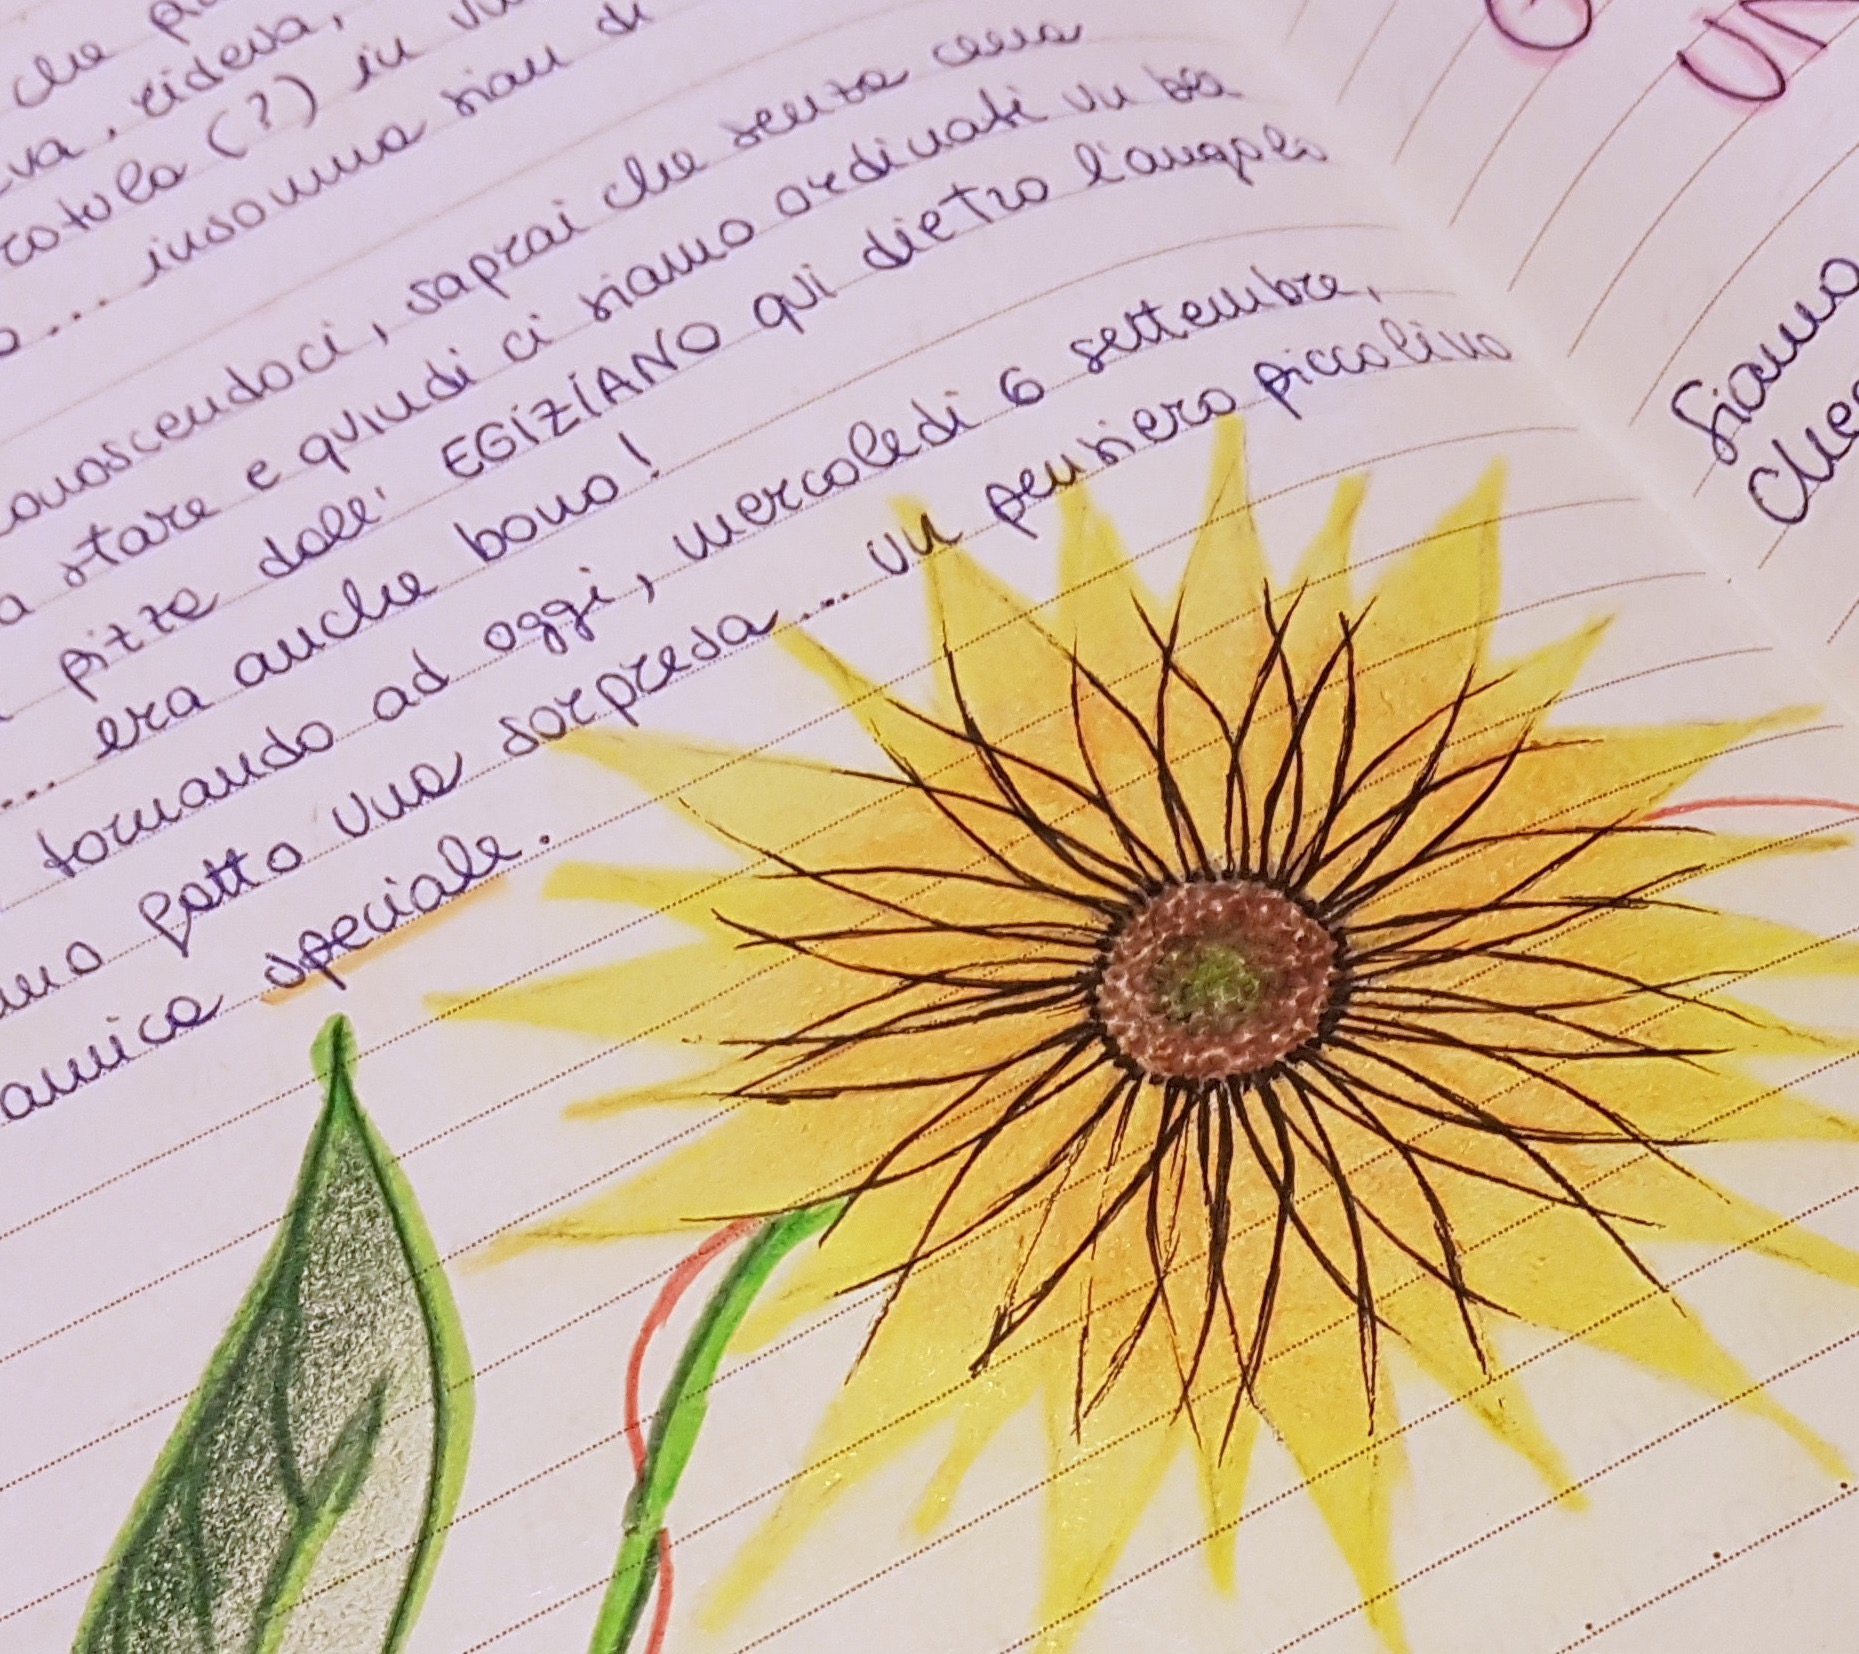 che
eva, rideva,
rotula (?) in
... insomma siam di
onoscendoci, saprai che senza cena
a stare e quindi ci siamo ordinati un bea
pizze dall' EGIZIANO qui dietro l'angolo
... era anche bono!
tornando ad oggi, mercoledì 6 settembre,
mo fatto una sorpresa... un pensiero piccolino
amica speciale.
G
UN
Siamo
che